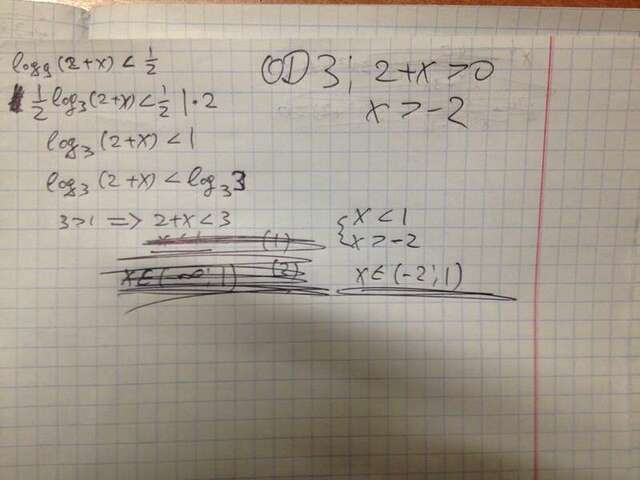 log₉(2+x) < 1/2
1/2 log₃(2+x) < 1/2 | · 2
log₃(2+x) < 1
log₃(2+x) < log₃3
3>1 => 2+x<3
(1)
x∈(-∞; 1) (2)
ODЗ; 2+x>0
x>-2
{ x<1
x>-2
x∈(-2; 1)